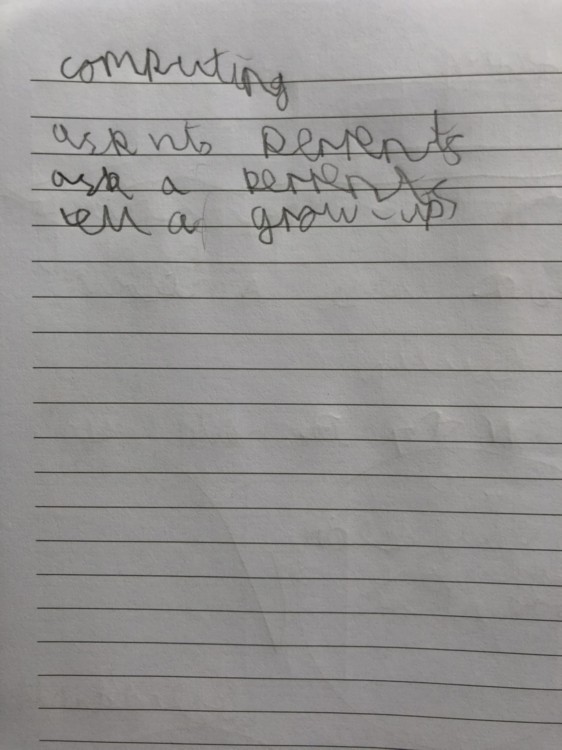 computing
ask nts perents
ask a perents
tell a grow-ups